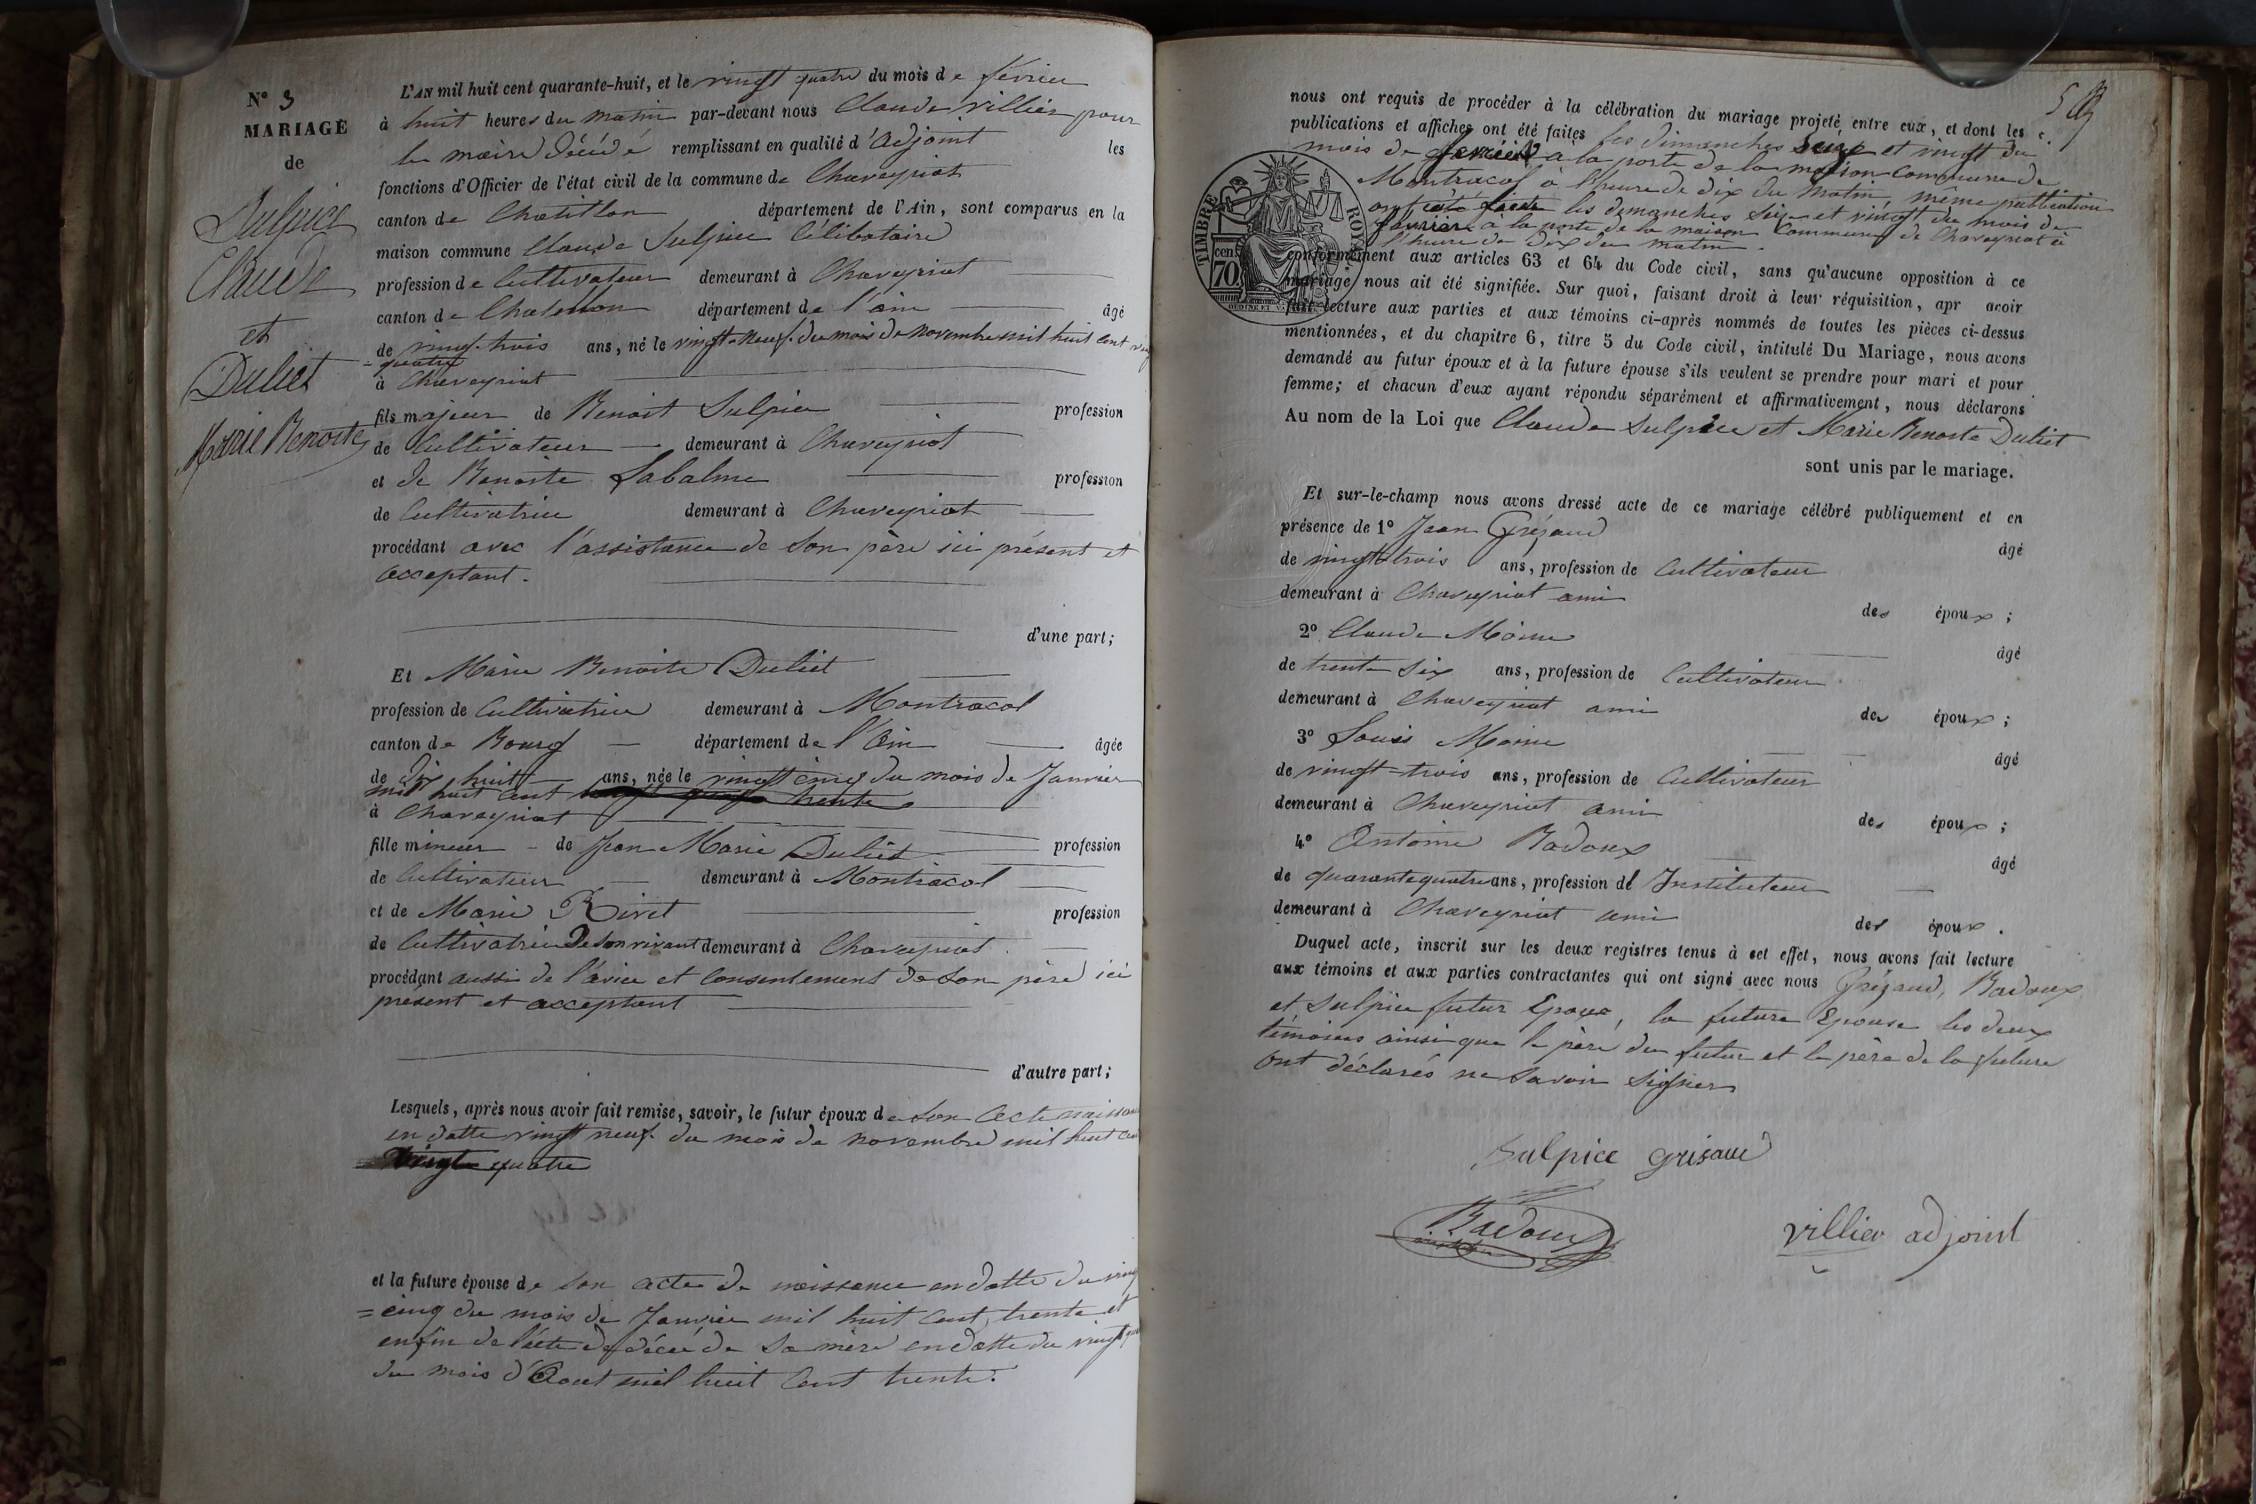 N° 3
MARIAGE
de
Sulpice
Claude
et
Duliet
Marie Benoite
L'AN mil huit cent quarante-huit, et le vingt quatre du mois de février
à huit heures du matin par-devant nous Claude Villier pour
le maire décédé remplissant en qualité d'adjoint les
fonctions d'Officier de l'état civil de la commune de Chaveyriat
canton de Chatillon département de l'Ain, sont comparus en la
maison commune Claude Sulpice Célibataire
profession de Cultivateur demeurant à Chaveyriat
canton de Chatillon département de l'ain âgé
de vingt-trois ans, né le vingt-neuf du mois de novembre mil huit cent vingt
= quatre
à Chaveyriat
fils majeur de Benoit Sulpice profession
de Cultivateur demeurant à Chaveyriat
et de Benoite Labalme profession
de Cultivatrice demeurant à Chaveyriat
procédant avec l'assistance de son père ici présent et
acceptant.
d'une part;
Et Marie Benoite Duliet
profession de Cultivatrice demeurant à Montracol
canton de Bourg département de l'Ain âgée
de dix huit ans, née le vingt cinq du mois de Janvier
mil huit cent trente
à Chaveyriat
fille mineur de Jean Marie Duliet profession
de Cultivateur demeurant à Montracol
et de Marie Rivet profession
de Cultivatrice de son vivant demeurant à Chaveyriat
procédant aussi de l'avice et consentement de son père ici
present et acceptant
d'autre part;
Lesquels, après nous avoir fait remise, savoir, le futur époux de son acte naissance
en datte vingt neuf du mois de novembre mil huit cent
vingt quatre
et la future épouse de son acte de naissance en datte du vingt
= cinq du mois de Janvier mil huit cent trente et
enfin de l'acte de décée de sa mère en datte du vingt
du mois d'Aout mil huit cent trente.
nous ont requis de procéder à la célébration du mariage projeté entre eux, et dont les
publications et affiches ont été faites les dimanches seize et vingt du
mois de février à la porte de la maison commune de
Montracol à l'heure de dix du matin, même publication
ont été faite les dimanches seize et vingt du mois de
février à la porte de la maison commune de Chaveyriat à
l'heure de dix du matin.
TIMBRE ROYAL
70 cen.
conformément aux articles 63 et 64 du Code civil, sans qu'aucune opposition à ce
mariage nous ait été signifiée. Sur quoi, faisant droit à leur réquisition, apr avoir
fait lecture aux parties et aux témoins ci-après nommés de toutes les pièces ci-dessus
mentionnées, et du chapitre 6, titre 5 du Code civil, intitulé Du Mariage, nous avons
demandé au futur époux et à la future épouse s'ils veulent se prendre pour mari et pour
femme; et chacun d'eux ayant répondu séparément et affirmativement, nous déclarons
Au nom de la Loi que Claude Sulpice et Marie Benoite Duliet
sont unis par le mariage.
Et sur-le-champ nous avons dressé acte de ce mariage célébré publiquement et en
présence de 1° Jean Grézaud
âgé
de vingt-trois ans, profession de Cultivateur
demeurant à Chaveyriat ami des époux;
2° Claude Moine
âgé
de trente six ans, profession de Cultivateur
demeurant à Chaveyriat ami des époux;
3° Louis Moine
âgé
de vingt-trois ans, profession de Cultivateur
demeurant à Chaveyriat ami des époux;
4° Antoine Badoux
âgé
de quarante quatre ans, profession de Instituteur
demeurant à Chaveyriat ami des époux.
Duquel acte, inscrit sur les deux registres tenus à cet effet, nous avons fait lecture
aux témoins et aux parties contractantes qui ont signé avec nous Grézaud, Badoux
et Sulpice futur Epoux, la future Epouse les deux
témoins ainsi que le père du futur et le père de la future
ont déclarés ne savoir signer
Sulpice grisaud
Badoux
villier adjoint